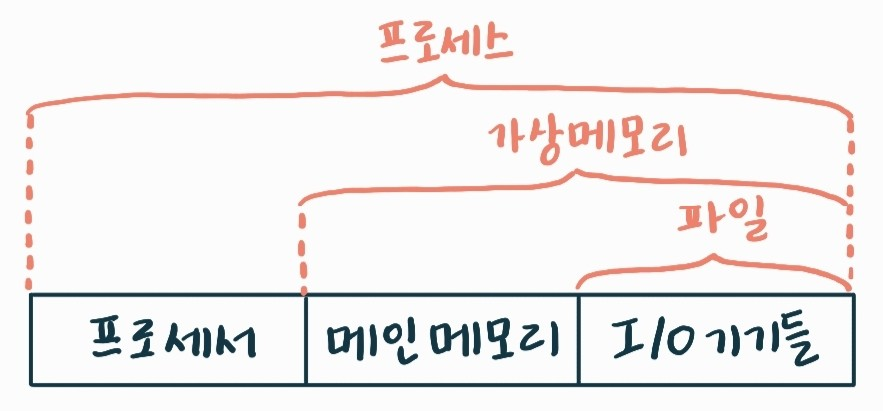 프로세스
가상메모리
파일
프로세서 메인메모리 I/O기기들